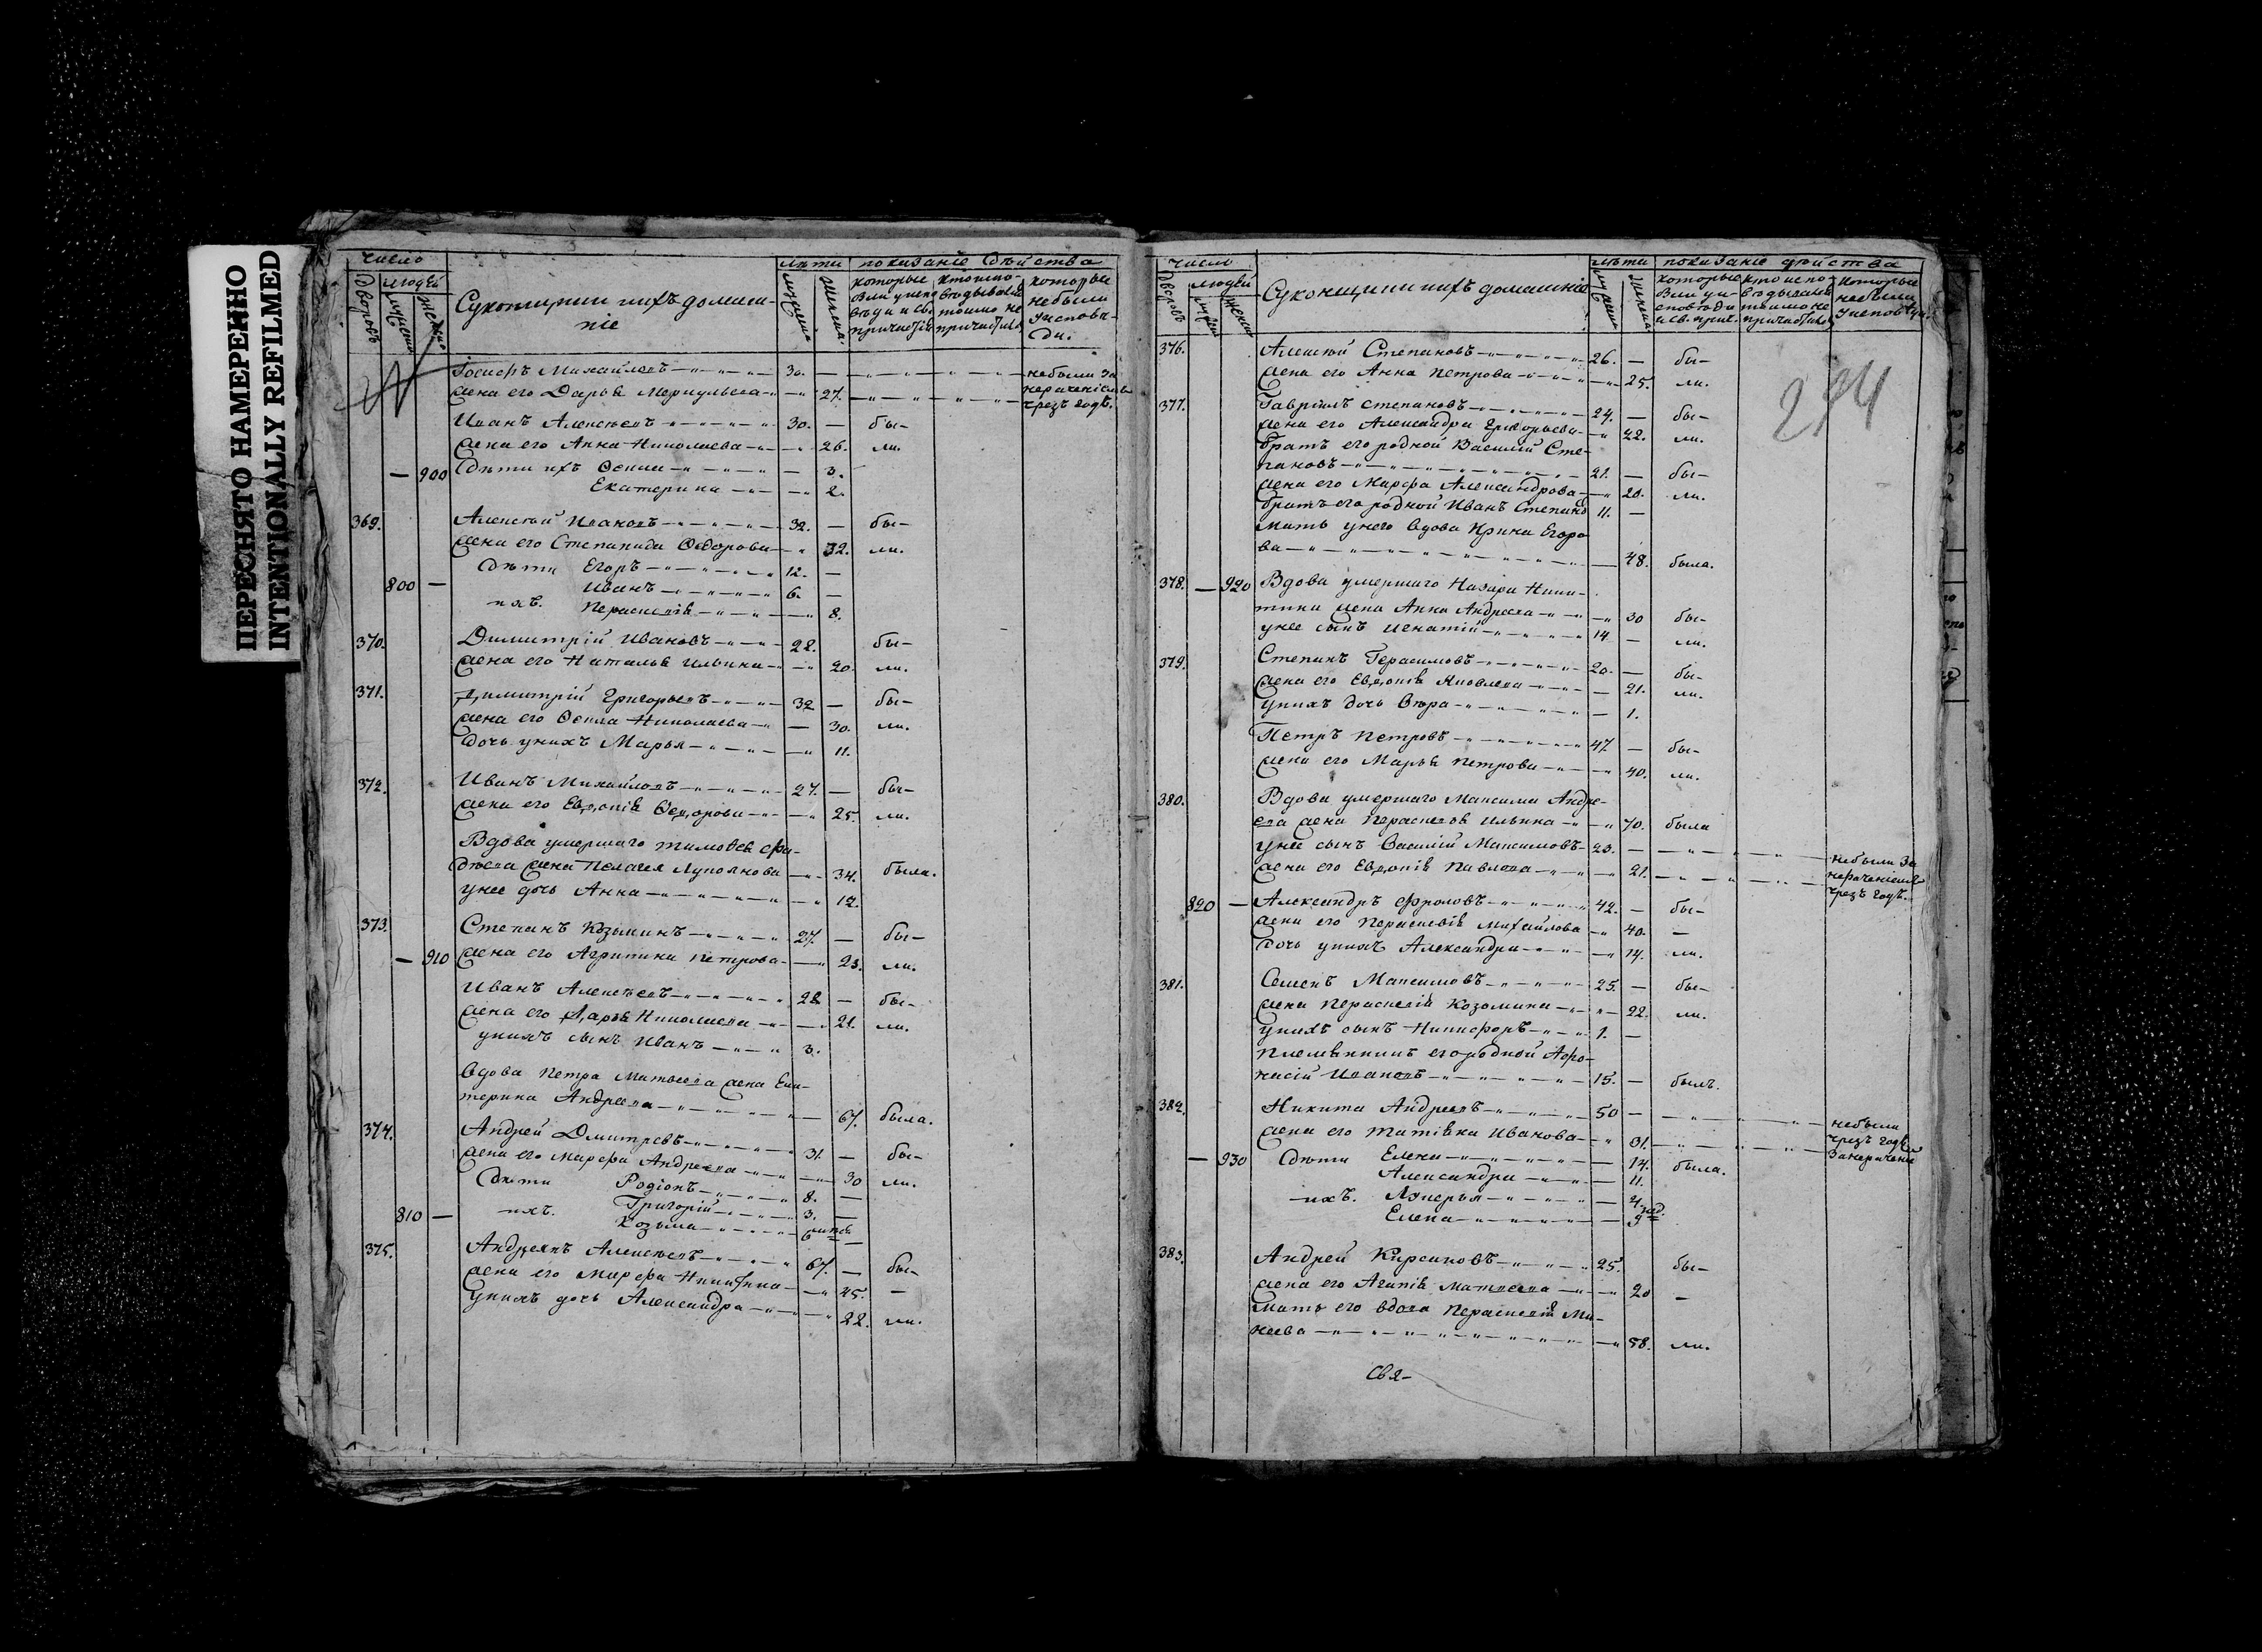 ПЕРЕСНЯТО НАМЕРЕННО
INTENTIONALLY REFILMED
число
лѣта показаніе дѣйства
дворовъ
людей
мужеска
женска
Суконщики ихъ домаш-
ніе
мужеска
женска
которые
были у испо
вѣди и св.
причастія
кто испо-
вѣдывался
токмо не
причастился
которые
небыли
уисповѣ-
ди.
Михайловъ 30. — небыли за
жена его Дарья 27. нераченіемъ
чрезъ годъ.
Иванъ Алексѣевъ 30. — бы-
жена его Анна Николаева 26. ли.
— 900 дѣти ихъ 3.
Екатерина 2.
369. Алексѣй Ивановъ 32. — бы-
жена его Степанида Ѳедорова 32. ли.
дѣти Егоръ 12. —
800 — Иванъ 6. —
ихъ. Параскевія 8.
370. Димитрій Ивановъ 22. бы-
жена его Наталья Ильина 20. ли.
371. Димитрій Григорьевъ 32 — бы-
жена его Николаева — 30. ли.
дочь у нихъ Марья 11.
372. Иванъ Михайловъ 27. — бы-
жена его Евдокія Ѳедорова 25. ли.
Вдова умершаго Тимоѳея Фа-
дѣева жена Пелагея 34. была.
у нее дочь Анна 12.
373. Степанъ Козьминъ 27. — бы-
— 910 жена его Агрипина Петрова 23. ли.
Иванъ Алексѣевъ 28 — бы-
жена его Дарья Николаева 21. ли.
у нихъ сынъ Иванъ 3.
Вдова Петра Матвеева жена Ека-
терина Андреева 67. была.
374. Андрей Дмитревъ 31. — бы-
жена его Марфа Андреева 30 ли.
дѣти Родіонъ 8. —
ихъ. Григорій 3. —
810 — Козьма 6 —
375. Андреянъ Алексѣевъ 67. — бы-
жена его Марфа Никитина 45. —
у нихъ дочь Александра 22. ли.
число
лѣта показаніе дѣйства
дворовъ
людей
мужеска
женска
Суконщики ихъ домашніе
мужеска
женска
которые
были уи-
споведи
и св. прич.
кто испо
ведывался
токмо не
причастился
которые
небыли
уисповѣди.
294
376. Алексѣй Степановъ 26. — бы-
жена его Анна Петрова 25. ли.
377. Гавріилъ Степановъ 24. — бы-
жена его Александра Григорьева 22. ли.
Братъ его родной Василій Сте-
пановъ 21. — бы-
жена его Марфа Александрова 20. ли.
братъ его родной Иванъ Степанов 11. —
мать у него вдова Ирина Егоро
ва 48. была.
378. — 920 Вдова умершаго Назара Ники-
тина жена Анна Андреева 30 бы-
у нее сынъ Игнатій 14 — ли.
379. Степанъ Герасимовъ 20. — бы-
жена его Евдокія Яковлева — 21. ли.
у нихъ дочь — 1.
Петръ Петровъ 47 — бы-
жена его Марья Петрова 40. ли.
380. Вдова умершаго Максима Андре-
ева жена Параскевья Ильина 70. была
у нее сынъ Василій Максимовъ 23. — небыли за
жена его Евдокія Павлова 21. нераченіемъ
чрезъ годъ.
820 — Александръ Фроловъ 42. — бы-
жена его Параскевія Михайлова 40. —
дочь у нихъ Александра 14. ли.
381. Семенъ Максимовъ 25. — бы-
жена Параскевія Козьмина 22. ли.
у нихъ сынъ Никифоръ 1. —
племянникъ его родной Афо-
насій Ивановъ 15. — былъ.
382. Никита Андреевъ 50 — небыли
жена его Татіяна Иванова 31. чрезъ годъ
— 930 дѣти Елена — 14. была. занераченіе
Александра — 11.
ихъ. Лукерья — 4
Елена —
383. Андрей Кирсановъ 25. бы-
жена его Агапія Матвеева 20 —
мать его вдова Параскевія Ма-
кеева 58. ли.
Свя-